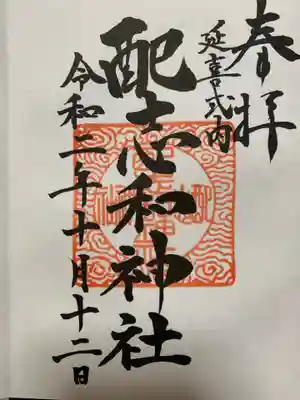 奉拝
延喜式内
配志和神社
令和二年十月十二日